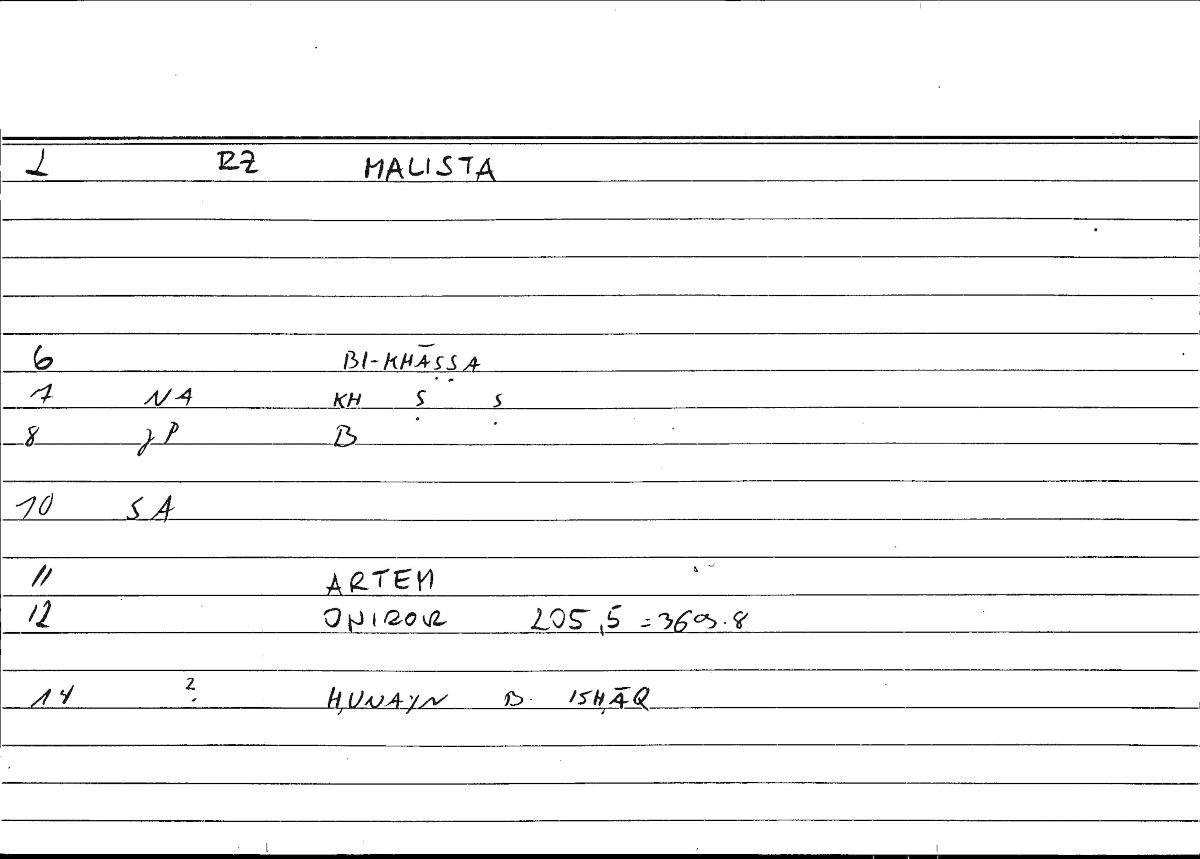 1 RZ MALISTA
6 BI-KHĀṢṢA
7 NA KH Ṣ Ṣ
8 JP B
10 SA
11 ARTEM
12 ONIROR 205,5 = 369.8
14 ? H,UNAYN B. ISH,ĀQ